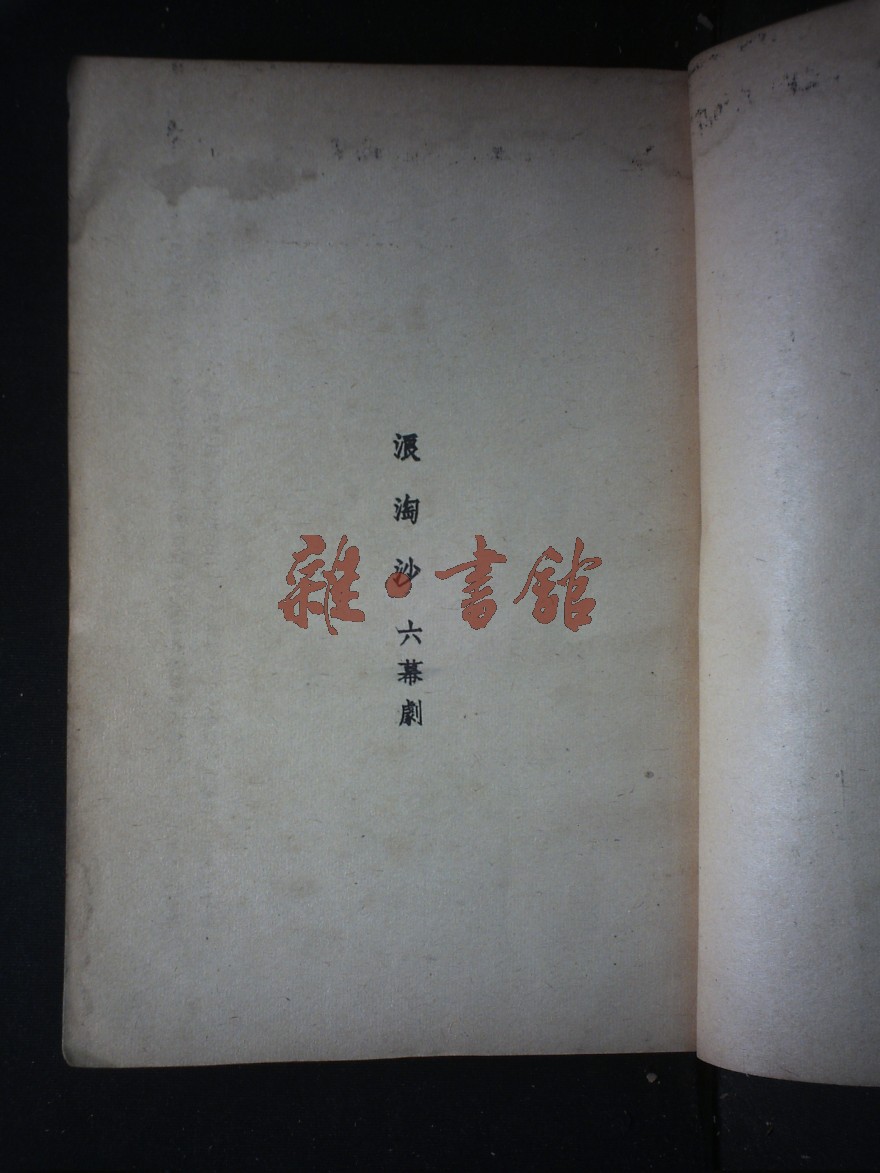 浪淘沙 六幕劇
雜·書館